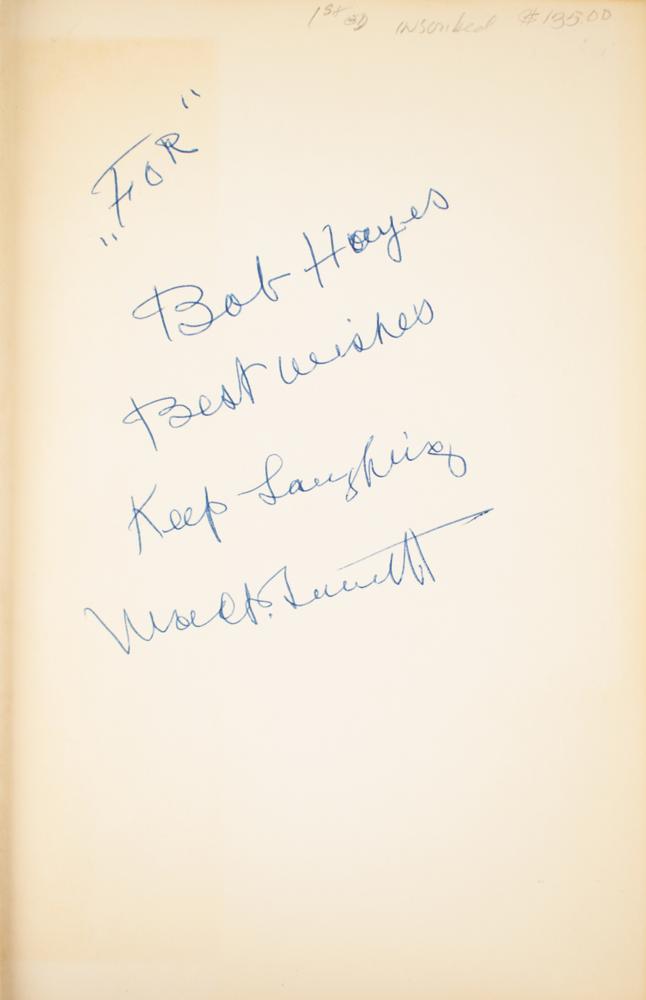 1st ED inscribed $135.00
"FOR"
Bob Hayes
Best wishes
Keep Laughing
Mack Sennett